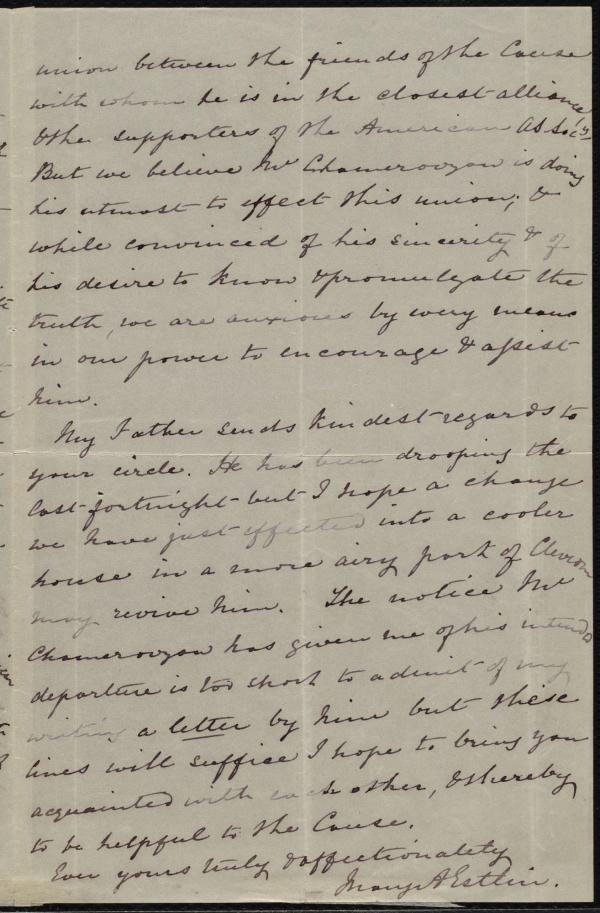 union between the friends of the Cause
with whom he is in the closest alliance
& the supporters of the American AS. Socy
But we believe Mr Chamerovzow is doing
his utmost to effect this union; &
while convinced of his sincerity & of
his desire to know & promulgate the
truth, we are anxious by every means
in our power to encourage & assist
him.
My Father sends kindest regards to
your circle. He has been drooping the
last fortnight but I hope a change
we have just effected into a cooler
house in a more airy part of Clevedon
may revive him. The notice Mr
Chamerovzow has given me of his intended
departure is too short to admit of my
writing a letter by him but these
lines will suffice I hope to bring you
acquainted with each other, & thereby
to be helpful to the Cause.
Ever yours truly & affectionately
Mary A Estlin.